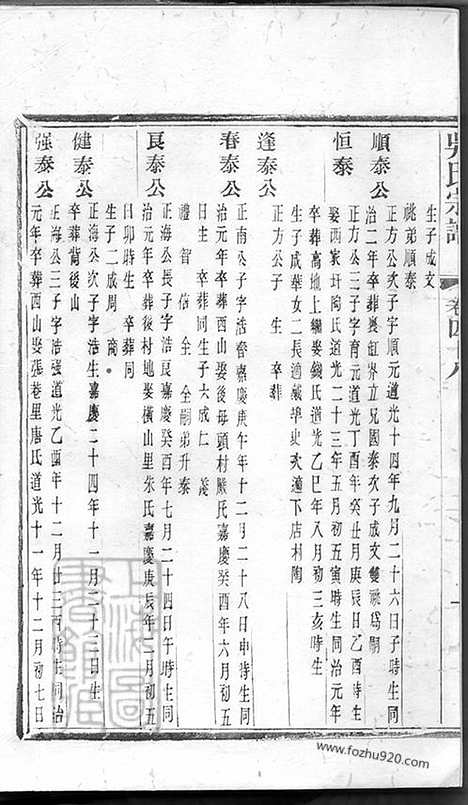 吳氏宗譜 卷四十八
生子成文
祧弟順泰
順泰公
正方公次子字順元道光十四年九月二十六日子時生同
治二年卒葬裏缸界立兄國泰次子成文雙祧爲嗣
恒泰
正方公三子字育元道光丁酉年癸丑月庚辰日乙酉時生
娶西家圩陶氏道光二十三年五月初五寅時生同治元年
卒葬高地上繼娶錢氏道光乙巳年八月初三亥時生
生子成華女二長適戴埠史次適下店村陶
逢泰公
正方公子 生 卒葬
春泰公
正南公子字浩春嘉慶庚午年十二月二十八日申時生同
治元年卒葬西山娶後母頭村嚴氏嘉慶癸酉年六月初五
日生 卒葬同生子六成仁 義
禮 智 信 全 全嗣弟升泰
良泰公
正海公長子字浩良嘉慶癸酉年七月二十四日午時生同
治元年卒葬後村地娶橫山里朱氏嘉慶庚辰年二月初五
日卯時生 卒葬同
生子二成周 商
健泰公
正海公次子字浩生嘉慶二十四年十一月二十三日生
卒葬背後山
强泰公
正海公三子字浩强道光乙酉年十二月廿三酉時生同治
元年卒葬西山娶張巷里唐氏道光十一年十二月初七日
www.fozhu920.com